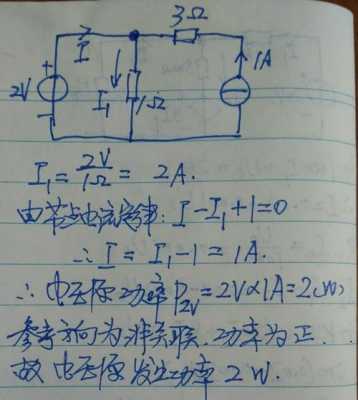 3Ω
I
2V
I₁
1Ω
1A
I₁ = 2V/1Ω = 2A.
由节点电流定律: I-I₁+1=0
∴ I = I₁-1 = 1A.
∴ 电压源功率 P₂ᵥ=2V×1A=2(W)
参考方向为非关联,功率为正.
故 电压源发出功率 2W.